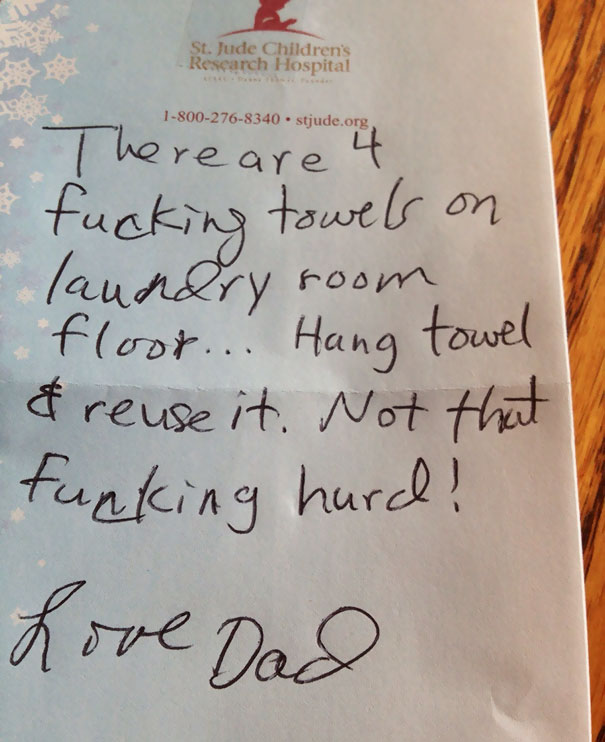 St. Jude Children's
Research Hospital
1-800-276-8340 • stjude.org
There are 4
fucking towels on
laundry room
floor... Hang towel
& reuse it. Not that
funking hurd!
Love Dad